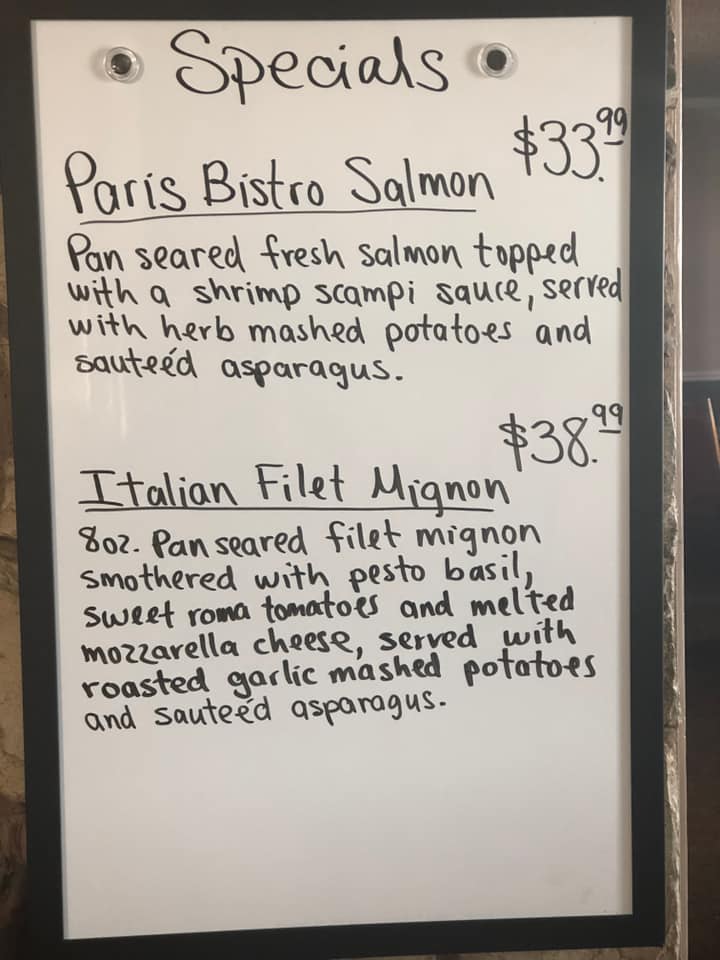 Specials
$33.99
Paris Bistro Salmon
Pan seared fresh salmon topped
with a shrimp scampi sauce, served
with herb mashed potatoes and
sauteéd asparagus.
$38.99
Italian Filet Mignon
8oz. Pan seared filet mignon
smothered with pesto basil,
sweet roma tomatoes and melted
mozzarella cheese, served with
roasted garlic mashed potatoes
and sauteéd asparagus.